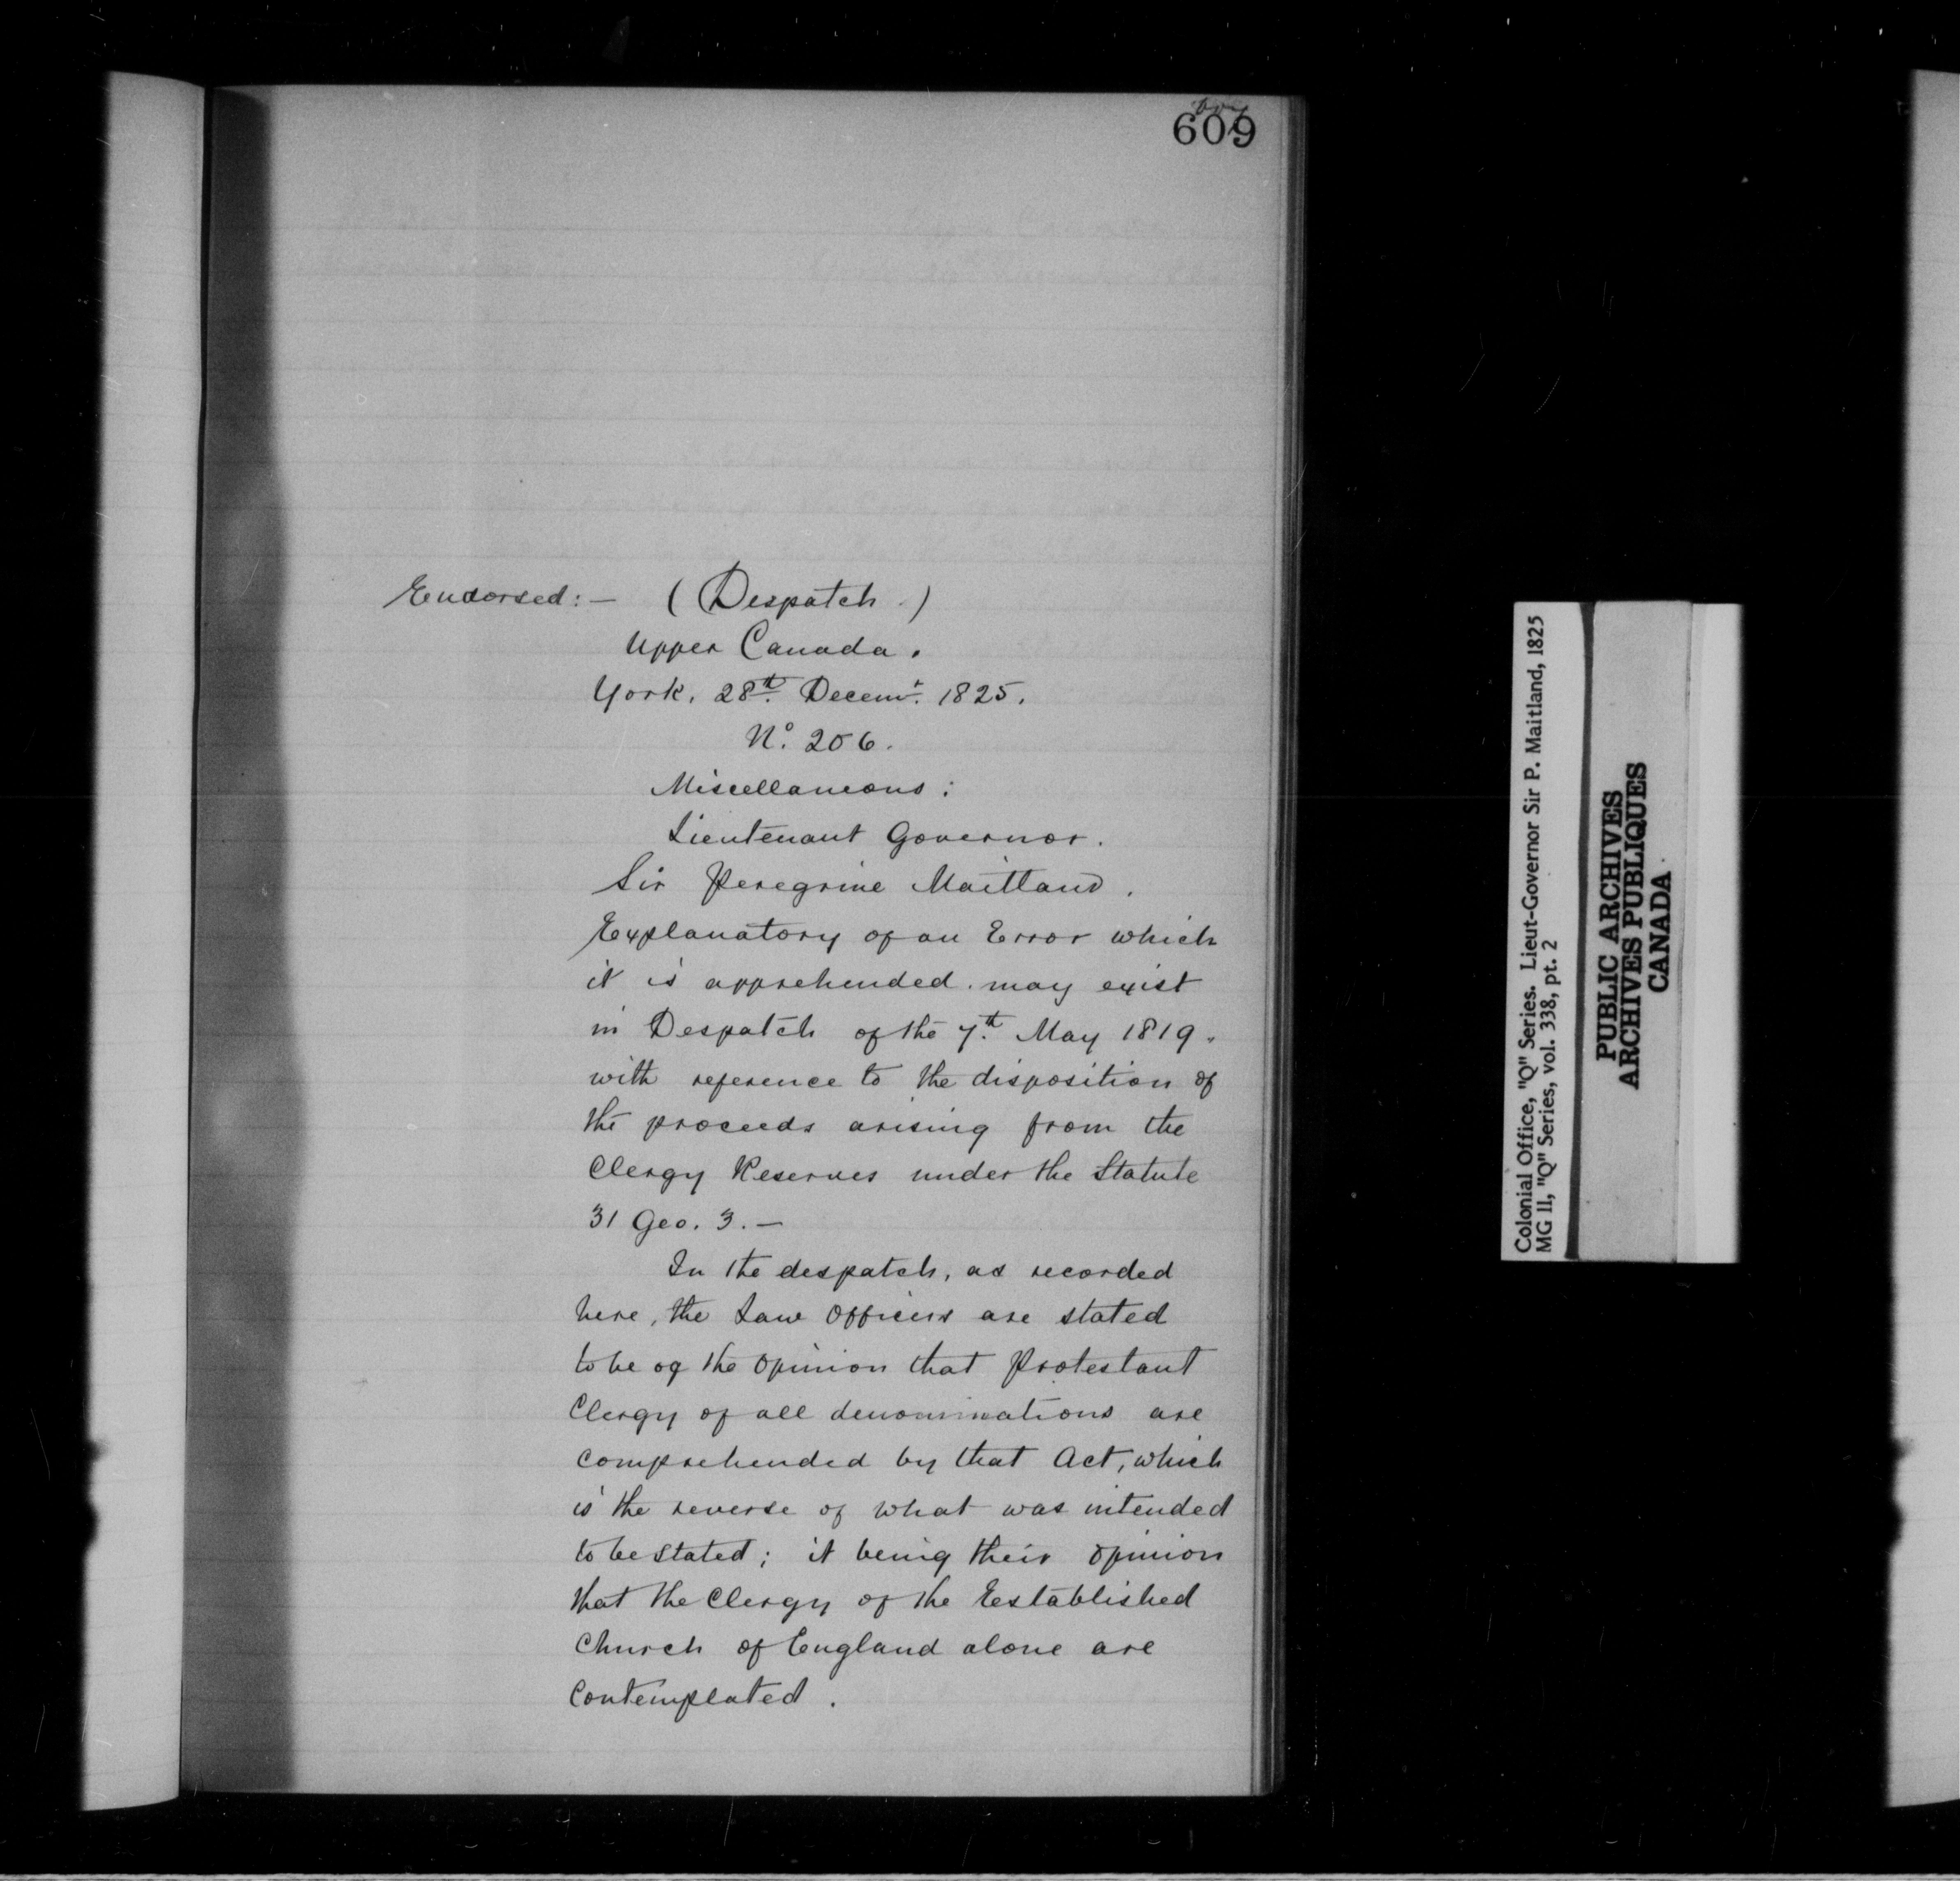 609
Endorsed:— (Despatch.)
Upper Canada.
York. 28th Decemr. 1825.
No. 206.
Miscellaneous:
Lieutenant Governor.
Sir Peregrine Maitland.
Explanatory of an Error which
it is apprehended may exist
in Despatch of the 7th May 1819.
with reference to the disposition of
the proceeds arising from the
Clergy Reserves under the Statute
31 Geo. 3.—
In the despatch, as recorded
here, the Law Officers are stated
to be of the opinion that Protestant
Clergy of all denominations are
comprehended by that Act, which
is the reverse of what was intended
to be stated; it being their opinion
that the Clergy of the Established
Church of England alone are
contemplated.
Colonial Office, "Q" Series. Lieut-Governor Sir P. Maitland, 1825
MG 11, "Q" Series, vol. 338, pt. 2
PUBLIC ARCHIVES
ARCHIVES PUBLIQUES
CANADA